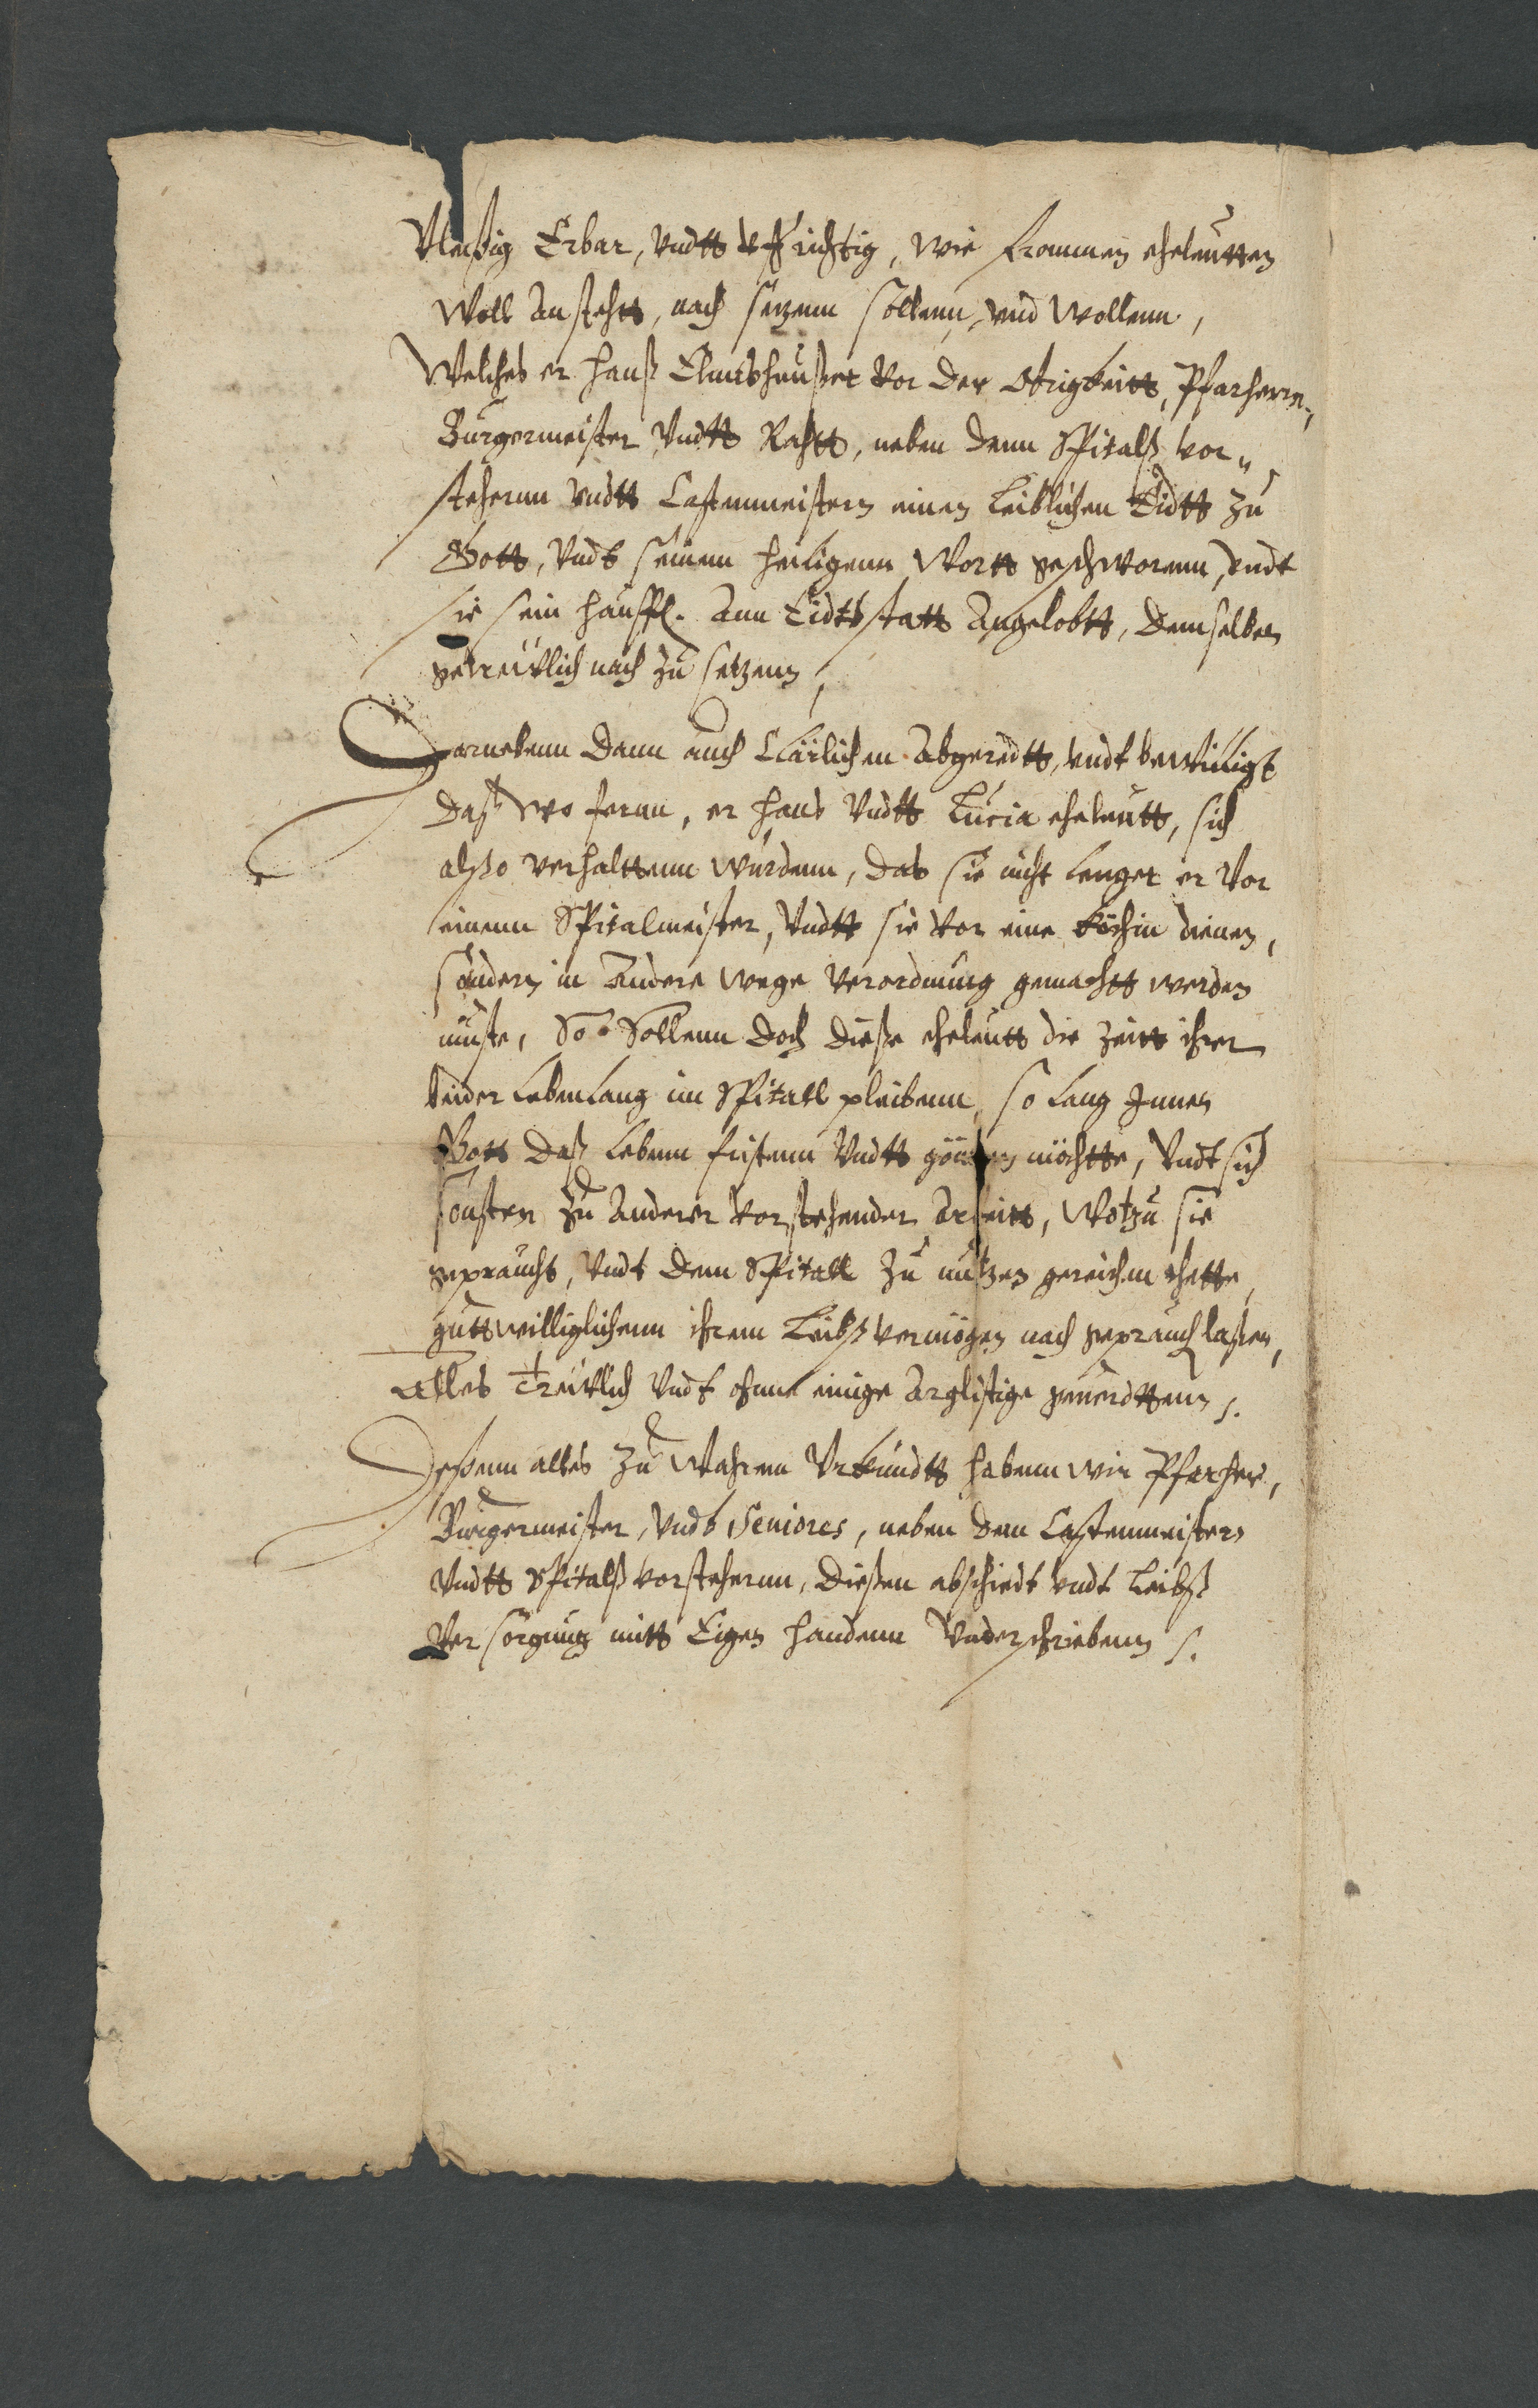 Vleißig Erbar, vndtt vffrichtig, wie frommen eheleutten
Woll Anstehtt, nach setzenn sollenn, vnd Wollenn,
Welches er Hanß Elmeshaußer vor der Obrigkeitt, Pfarherrn,
Burgermeister vndtt Rahtt, neben denn Spitalß vor„
stehernn vndtt Castenmeistern einen Leiblichen Eidtt zu
Gott, vndt seinem heiligenn Wortt geschworenn, vndt
sie sein haußfr. Ann Eidtsstatt Angelobtt, demselben
getreüwlich nach zu setzenn,
Darnebenn dann auch Clärlichen Abgeredtt, vndt bewilligt
daß wo fernn, er Hans vndtt Lucia eheleutt, sich
alßo verhalttenn wurdenn, das sie nicht lenger er vor
einenn Spitalmeister, vndtt sie vor eine köchin dienen,
sondern in Andere wege verordnung gemachtt werden
muste, So Sollenn doch dieße eheleutt die Zeitt ihrer
beider Lebenlang im Spitall pleibenn, so lang Innen
Gott daß Lebenn fristenn vndtt gönnen möchtte, vndt sich
sonsten zu Anderer vorstehender Arbeitt, Wozu sie
gepraucht, vndt dem Spitall zu nutzen gereichen thette,
guttwilliglichenn ihrem Leibß vermögen nach geprauch laßen,
Alles Treüwlich vndt ohnne einige Arglistige geuerdttenn.
Deßenn alles zu Wahrem Vrkundtt habenn wir Pfarher,
Burgermeister, vndt Seniores, neben dem Castenmeistern
vndtt Spitalß vorstehernn, dießen abschiedt vndt Leibß
Versorgung mitt Eigen handenn Vnderschriebenn.